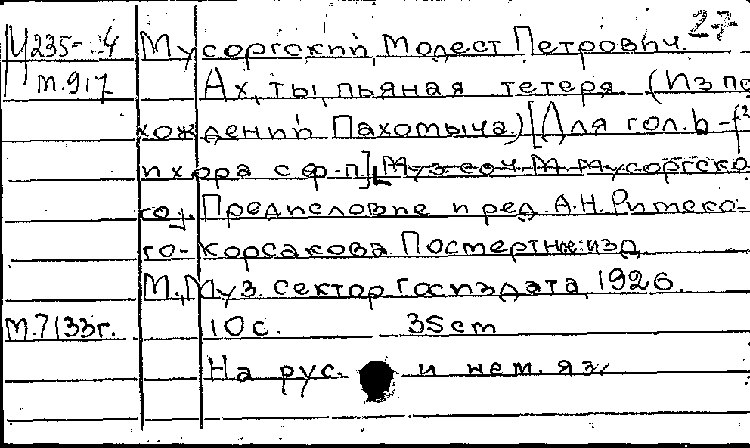 27
Ц235-4 Мусоргский, Модест Петрович.
т.917 Ах, ты, пьяная тетеря. (Из по
хождений Пахомыча.) [Для гол. h-f³
и хора с ф-п] Муз соч. М. Мусоргско
го]. Предисловие и ред. А.Н. Римско-
го-Корсакова Посмертн. изд
М., Муз. сектор Госиздата, 1926.
т.7133г. 10с. 35cm
На рус. и нем. яз.